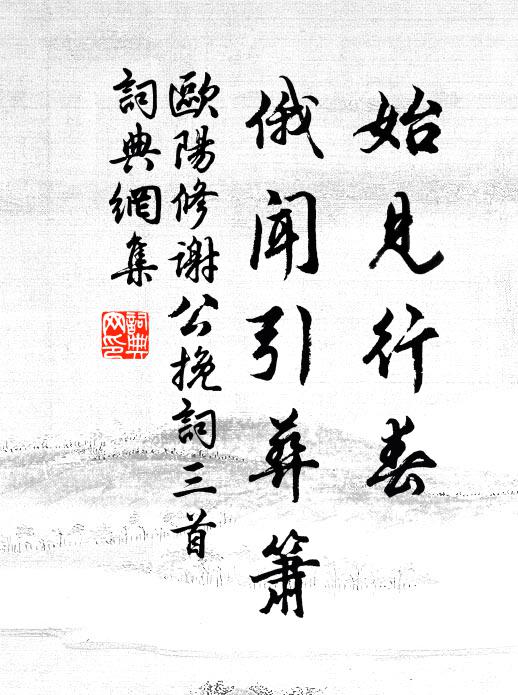 始見行春
俄聞引葬簫
歐陽修謝公挽詞三首
詞典網集
詞典網印